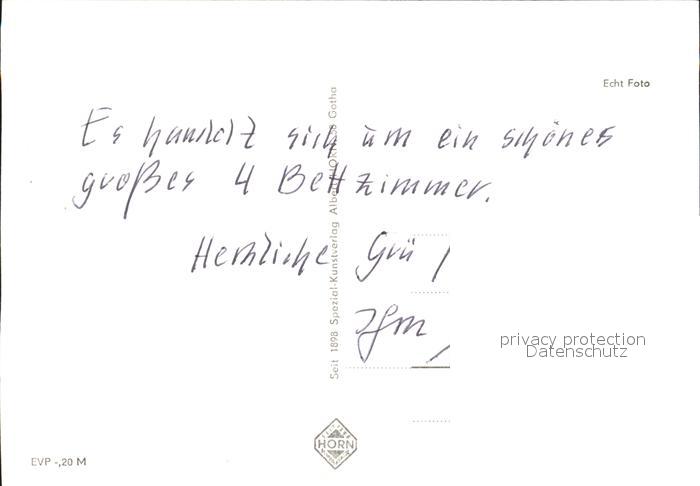 Echt Foto
Es handelt sich um ein schönes
großes 4 Bettzimmer.
Herzliche Grü
privacy protection
Datenschutz
Seit 1898 Spezial-Kunstverlag Albert HORN 58 Gotha
HORN
EVP -,20 M